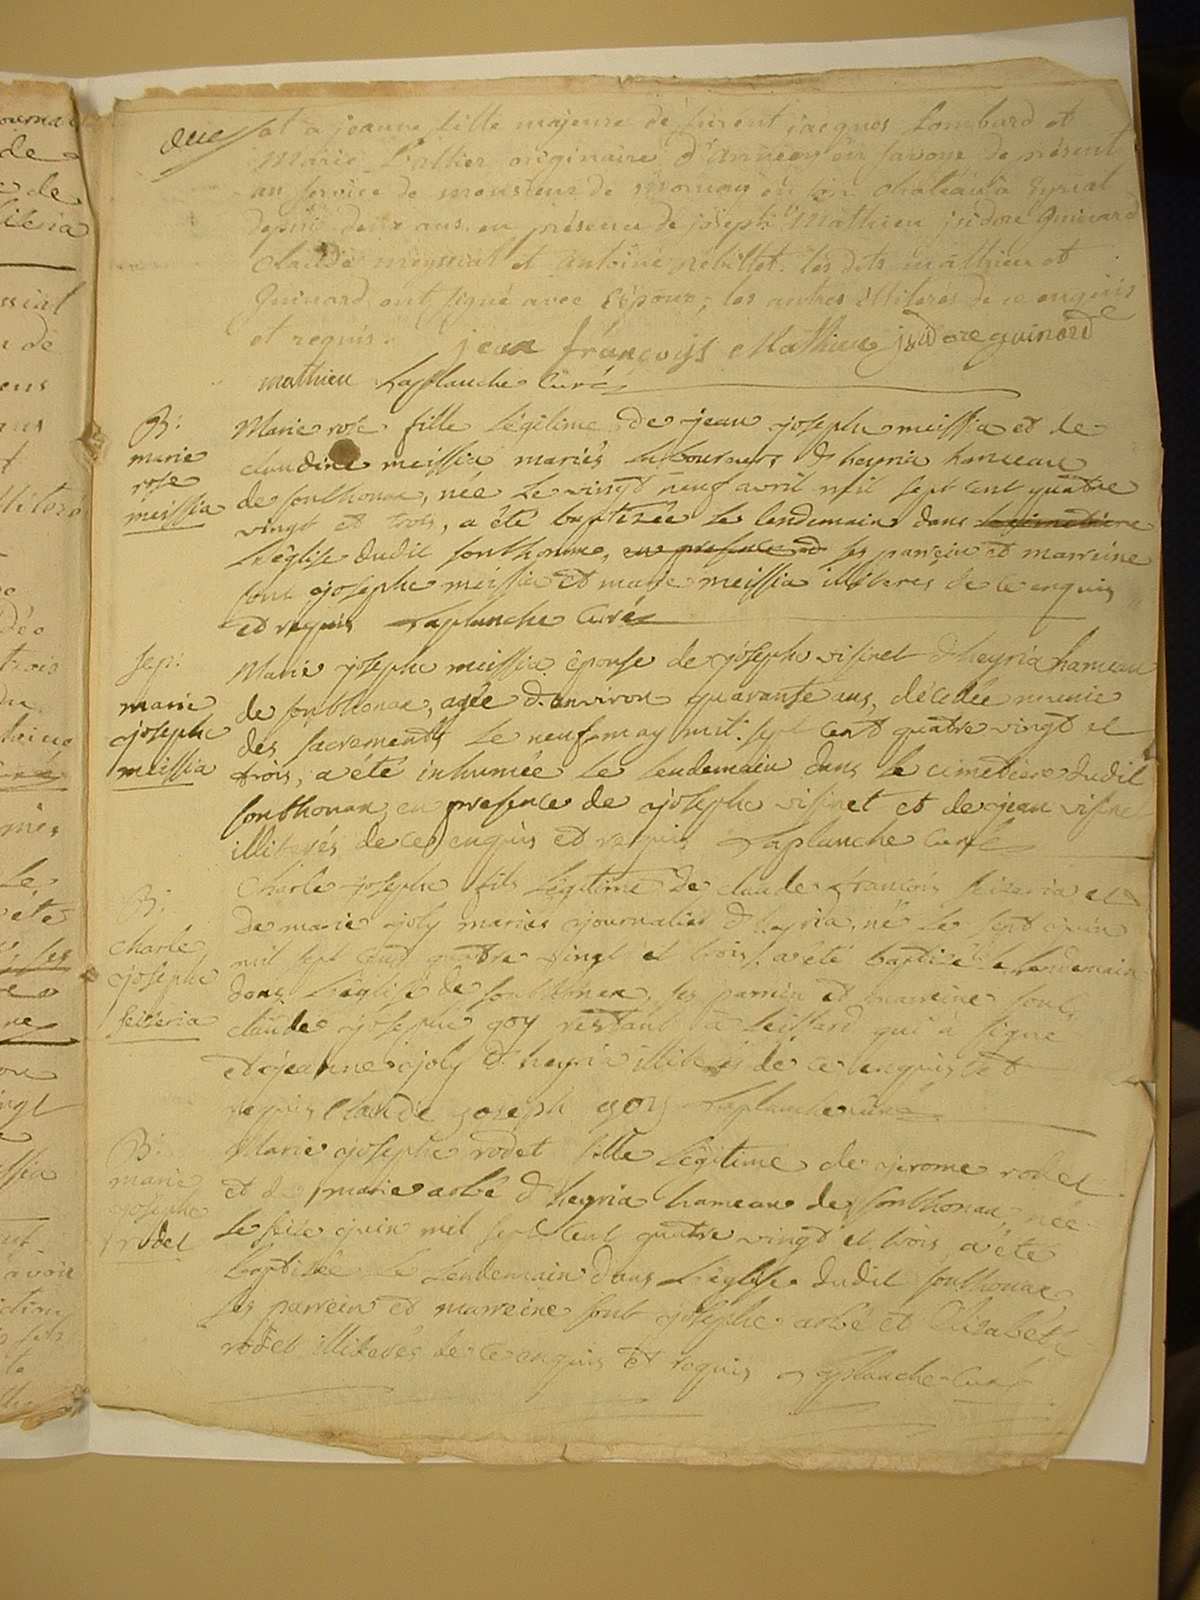 et a jeanne fille majeure de furent jacques Lombard et
Marie originaire d'annecy en savoye de présent
au service de monsieur de en son château a Eyriat
depuis deux ans en présence de joseph Mathieu jsidore Guinard
claude meyssiat et antoine rebillet. les dits mathieu et
Guinard ont signé avec l'épous, les autres illiterés de ce enquis
et requis. jean françoijs Mathieu jsidore guinard
mathieu Laplanche Curé
B:
marie
rose
meissia
Marie rose fille légitime de jean joseph meissia et de
claudine meissia mariés laboureurs d'heyria hameau
de sonthonax, née le vingt neuf avril mil sept cent quatre
vingt et trois, a été baptisée le lendemain dans le cimetiere
l'église dudit sonthonax, en presence de ses parrein et marreine
sont josephe meissia et marie meissia illiteres de ce enquis
et requis Laplanche Curé
Sep:
marie
josephe
meissia
Marie josephe meissia épouse de josephe visinet d'heyria hameau
de sonthonax, agée d'environ quarante ans, décédée munie
des sacrements le neuf may mil sept cent quatre vingt et
trois, a été inhumée le lendemain dans le cimetiere dudit
sonthonax en presence de josephe visinet et de jean visinet
illiterés de ce enquis et requis Laplanche Curé
B:
charle
josephe
seizeria
Charle josephe fils légitime de claude françois seizeria et
de marie joly mariés journaliers d'heyria, né le sept juin
mil sept cent quatre vingt et trois a été baptizé le lendemain
dans l'église de sonthonax, ses parrein et marreine sont
claude josephe goy restant à Leissard qui a signé
et jeanne joly d'heyria illiterés de ce enquis et
requis Claude joseph goy Laplanche curé
B:
marie
josephe
rodet
Marie josephe rodet fille légitime de jerome rodet
et de marie arbé d'heyria hameau de sonthonax, née
le seize juin mil sept cent quatre vingt et trois, a été
baptisée le lendemain dans l'église dudit sonthonax
ses parrein et marreine sont josephe arbé et Elizabet
rodet illiterés de ce enquis et requis Laplanche Curé